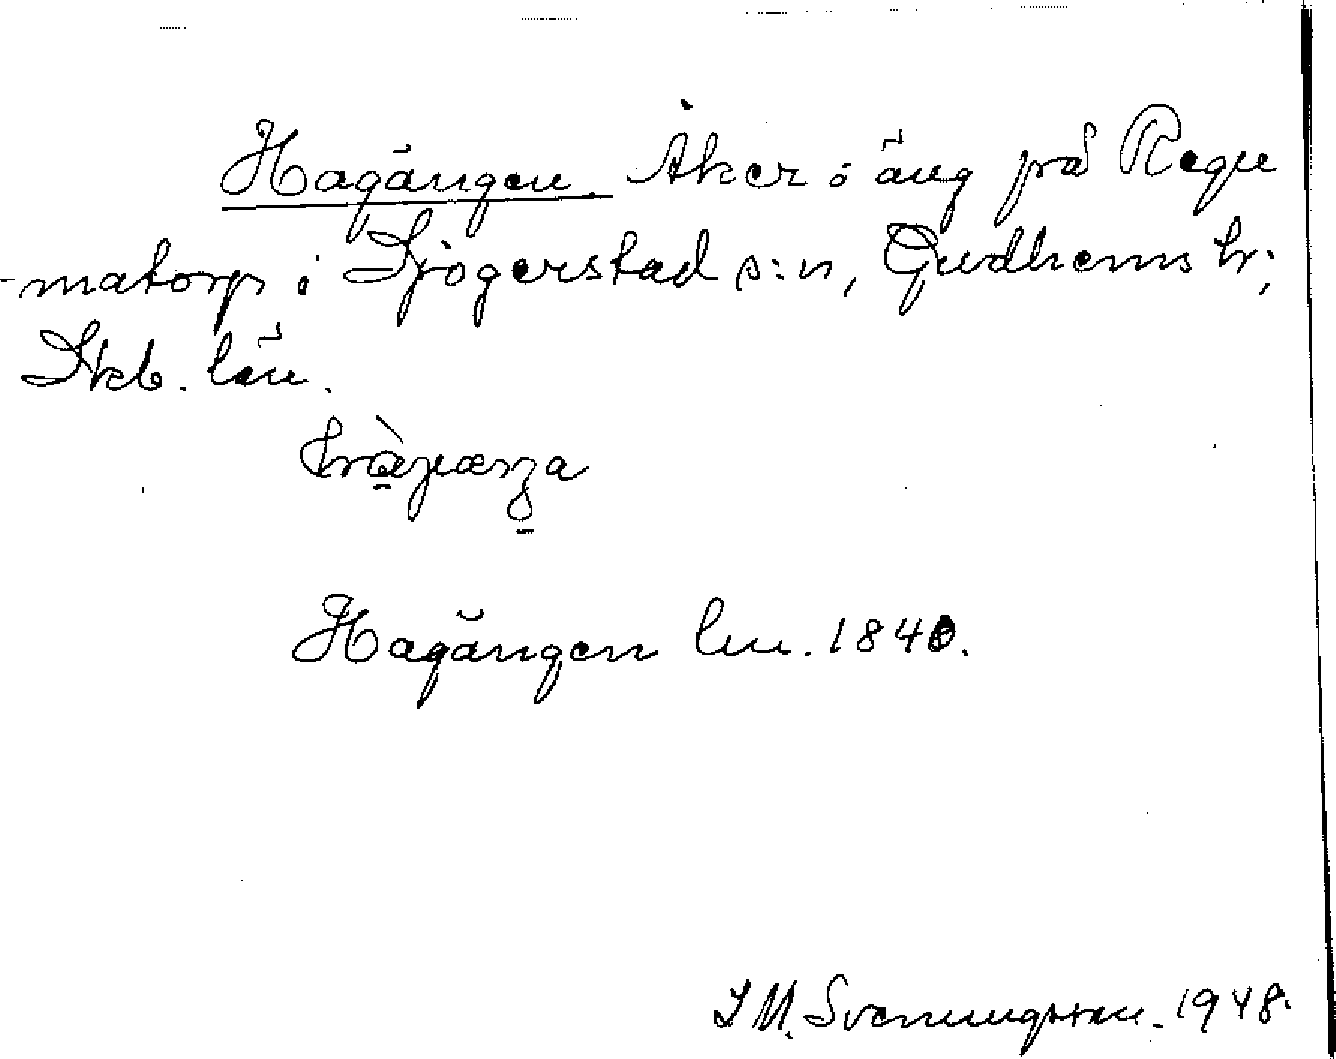 Hagängen. Åker o äng på Regu
-matorp i Sjögerstad s:n, Gudhems hr;
Skb. län.
Hagängen lm. 1840.
I M. Svenungsson. 1948.